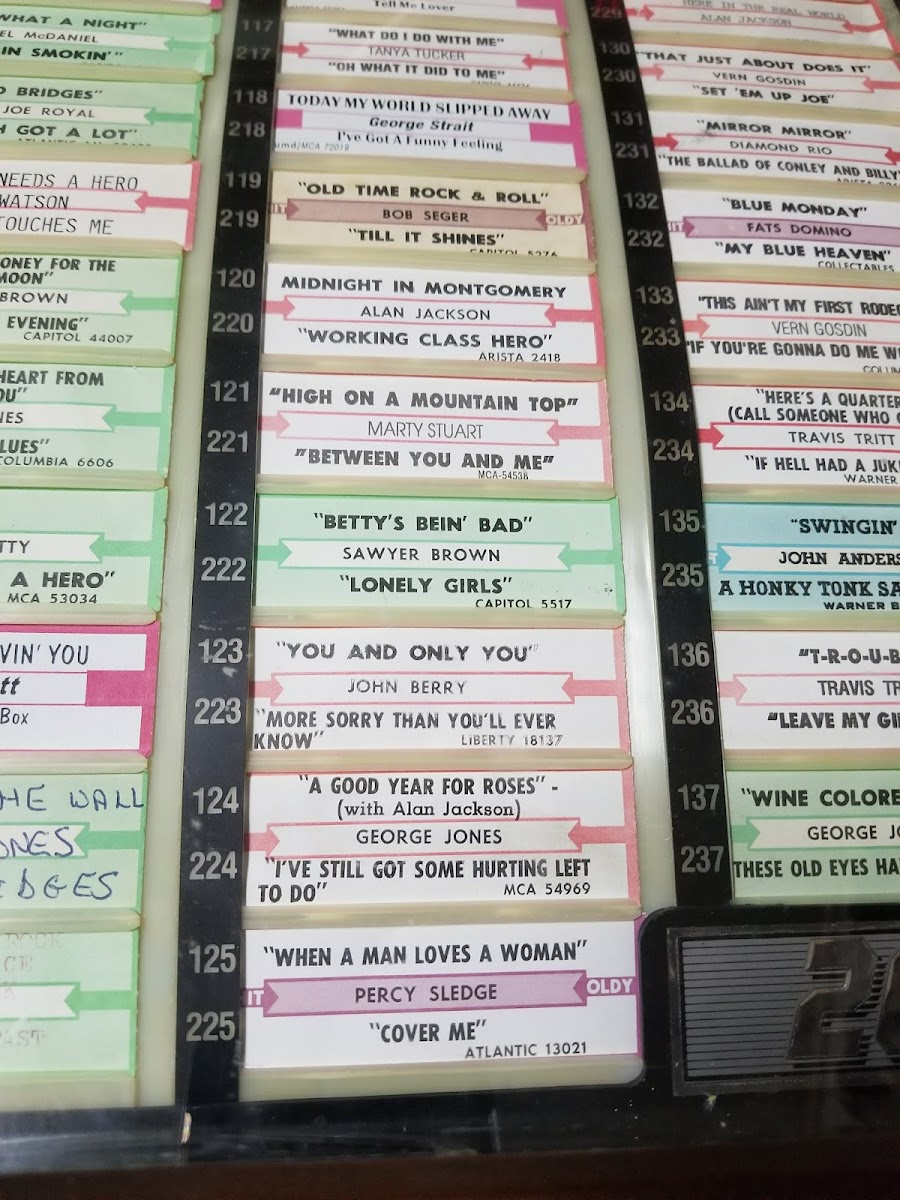 WHAT A NIGHT"
EL McDANIEL
IN SMOKIN'"
D BRIDGES"
JOE ROYAL
H GOT A LOT"
NEEDS A HERO
WATSON
TOUCHES ME
ONEY FOR THE
MOON"
BROWN
EVENING"
CAPITOL 44007
HEART FROM
OU"
NES
LUES"
COLUMBIA 6606
TTY
A HERO"
MCA 53034
VIN' YOU
tt
Box
HE WALL
ONES
IDGES
ROCK
CE
K
AST
Tell Me Lover
117
217
"WHAT DO I DO WITH ME"
TANYA TUCKER
"OH WHAT IT DID TO ME"
118
218
TODAY MY WORLD SLIPPED AWAY
George Strait
I've Got A Funny Feeling
umd/MCA 72019
119
219
"OLD TIME ROCK & ROLL"
HIT BOB SEGER OLDY
"TILL IT SHINES"
CAPITOL 5276
120
220
MIDNIGHT IN MONTGOMERY
ALAN JACKSON
"WORKING CLASS HERO"
ARISTA 2418
121
221
"HIGH ON A MOUNTAIN TOP"
MARTY STUART
"BETWEEN YOU AND ME"
MCA-54538
122
222
"BETTY'S BEIN' BAD"
SAWYER BROWN
"LONELY GIRLS"
CAPITOL 5517
123
223
"YOU AND ONLY YOU"
JOHN BERRY
"MORE SORRY THAN YOU'LL EVER
KNOW"
LIBERTY 18137
124
224
"A GOOD YEAR FOR ROSES" -
(with Alan Jackson)
GEORGE JONES
"I'VE STILL GOT SOME HURTING LEFT
TO DO"
MCA 54969
125
225
"WHEN A MAN LOVES A WOMAN"
IT PERCY SLEDGE OLDY
"COVER ME"
ATLANTIC 13021
229
HERE IN THE REAL WORLD
ALAN JACKSON
130
230
"THAT JUST ABOUT DOES IT"
VERN GOSDIN
"SET 'EM UP JOE"
131
231
"MIRROR MIRROR"
DIAMOND RIO
"THE BALLAD OF CONLEY AND BILLY"
132
232
"BLUE MONDAY"
FATS DOMINO
"MY BLUE HEAVEN"
COLLECTABLES
133
233
"THIS AIN'T MY FIRST RODEO
VERN GOSDIN
"IF YOU'RE GONNA DO ME W
COLUM
134
234
"HERE'S A QUARTER
(CALL SOMEONE WHO C
TRAVIS TRITT
"IF HELL HAD A JUK
WARNER
135
235
"SWINGIN'
JOHN ANDERS
A HONKY TONK SA
WARNER B
136
236
"T-R-O-U-B
TRAVIS TR
"LEAVE MY GI
137
237
"WINE COLORE
GEORGE JO
THESE OLD EYES HA